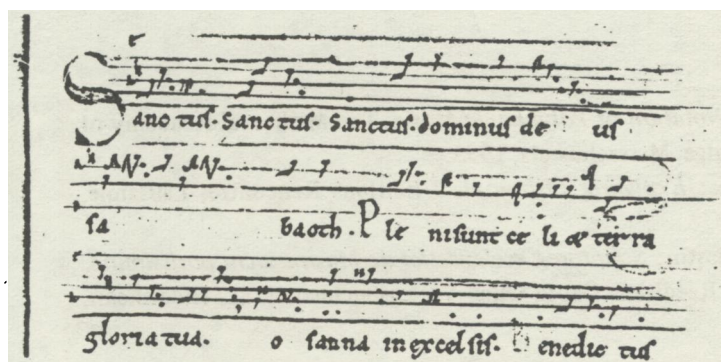 Sanctus. Sanctus. Sanctus. dominus de us
sa baoth. Ple ni sunt ce li & ter ra
gloria tua. o sanna in excel sis. Benedic tus